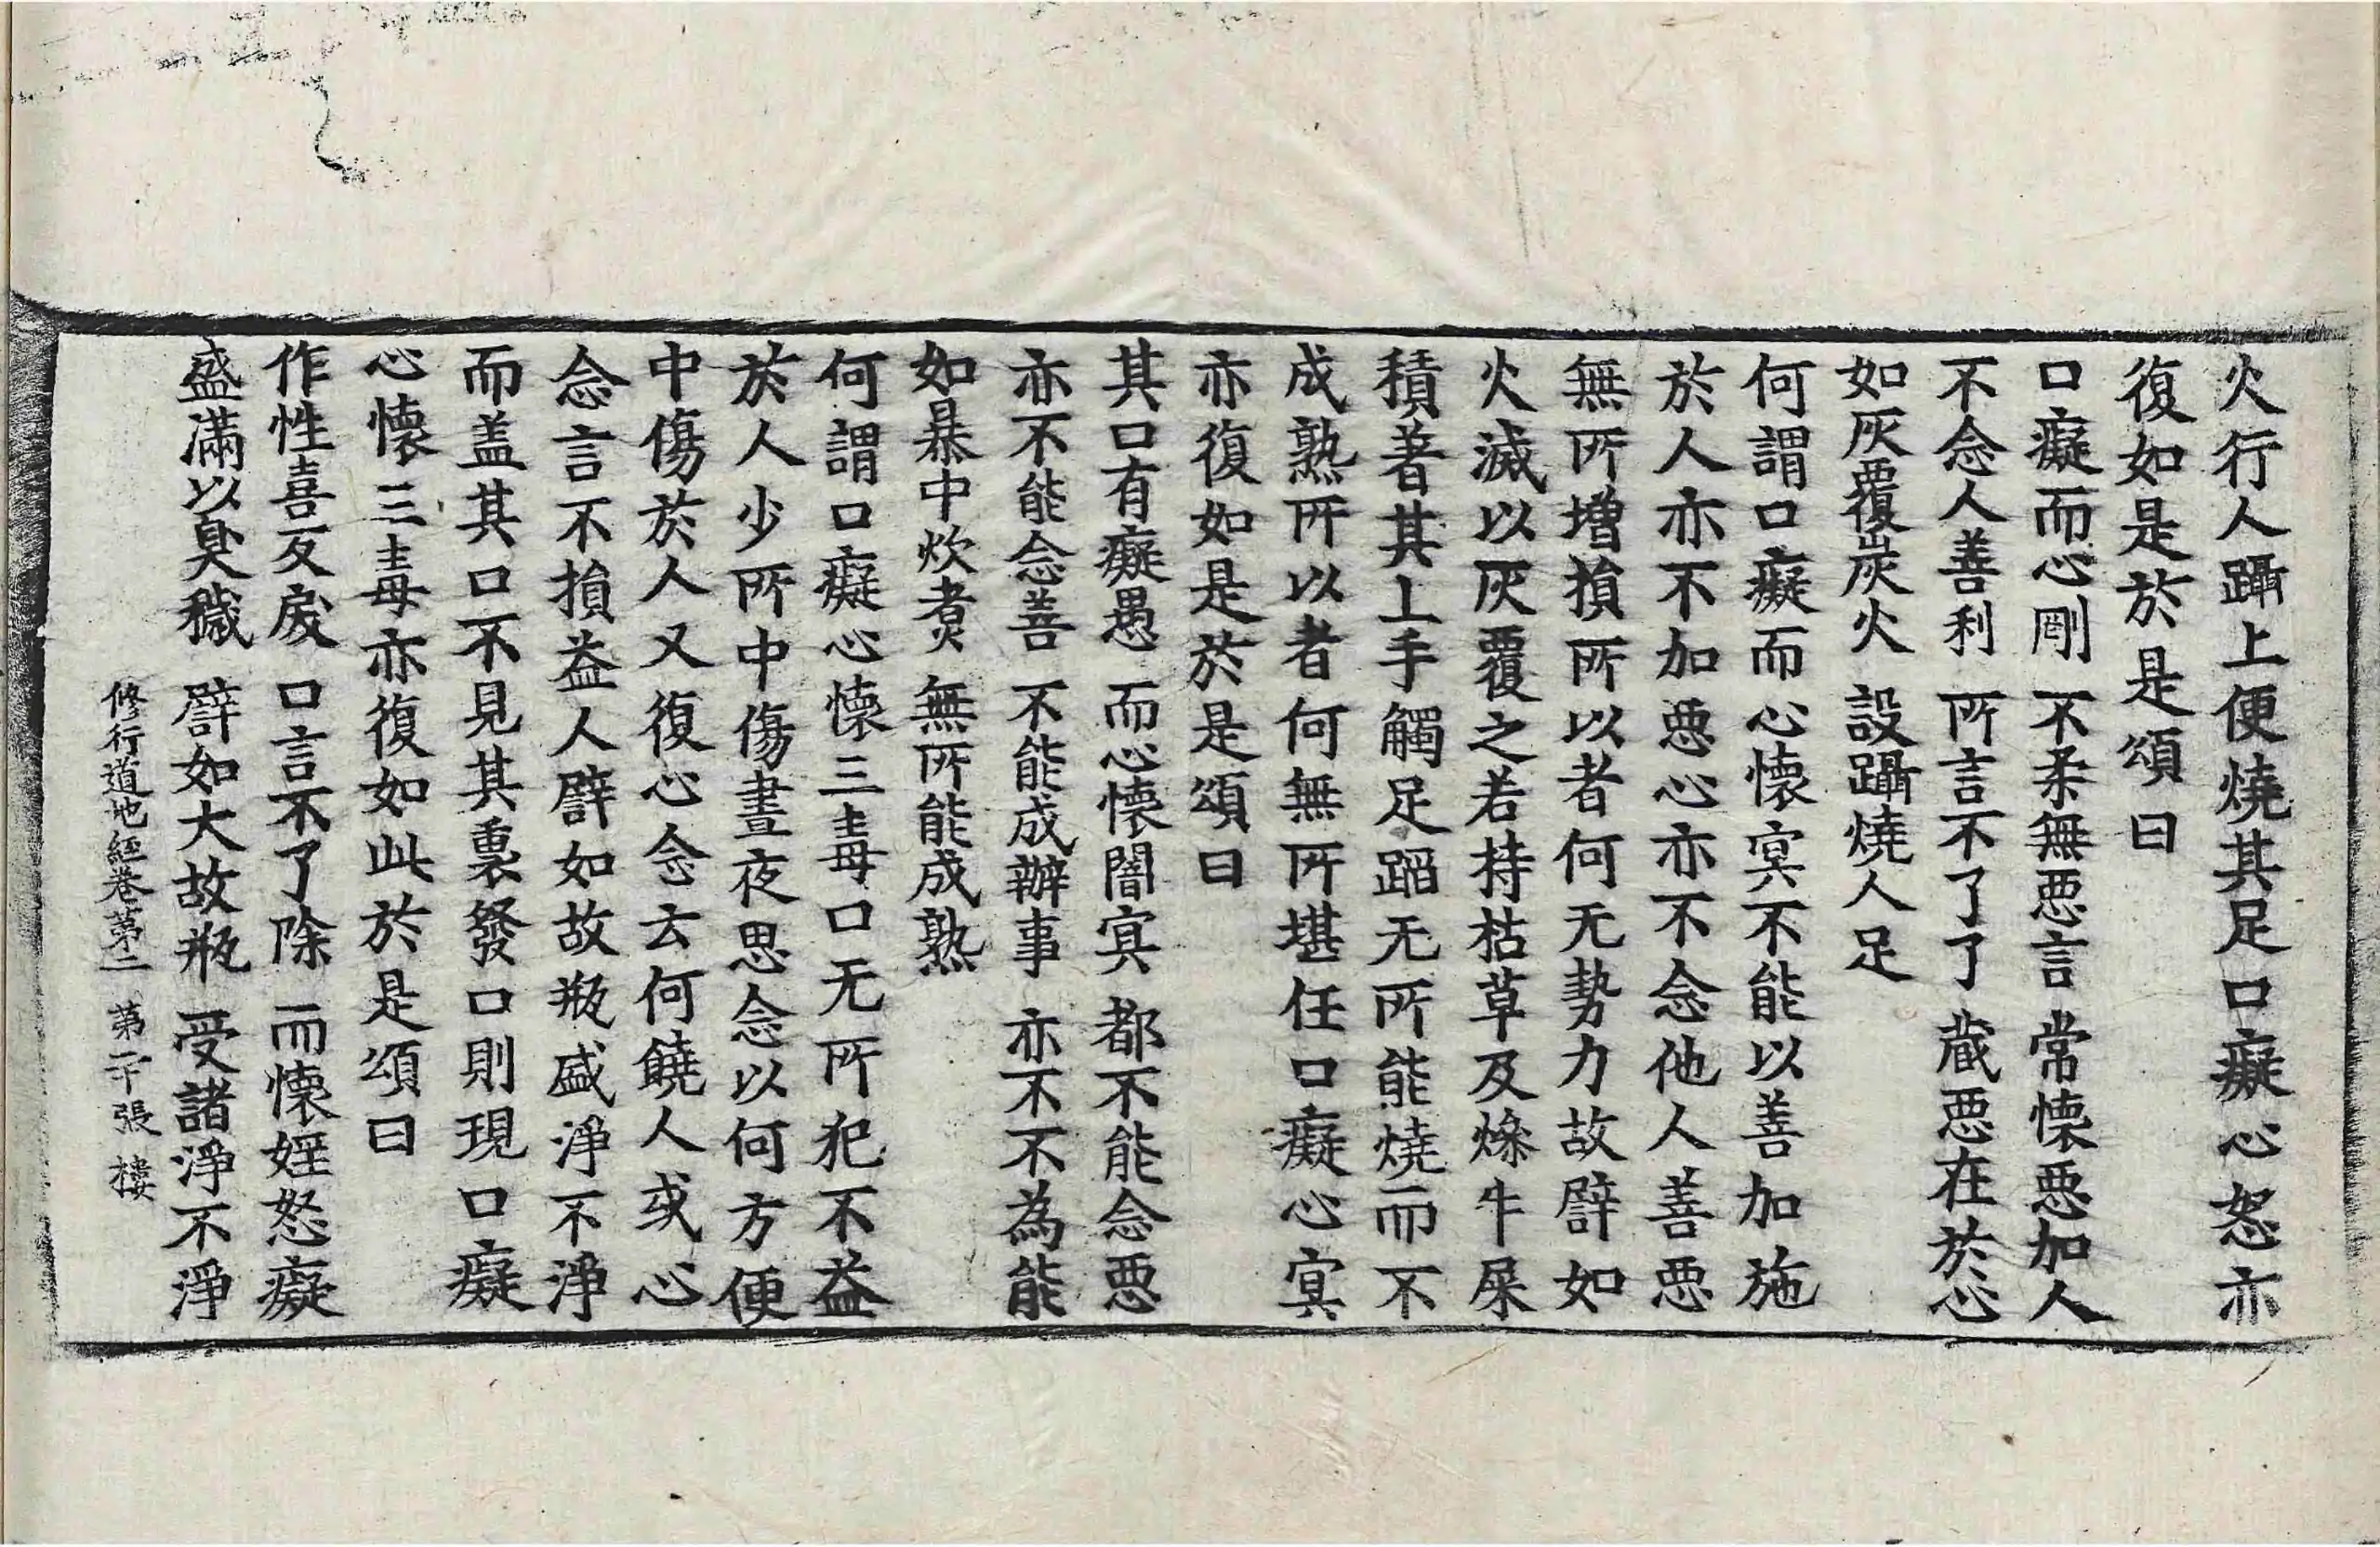 火行人躡上便燒其足口癡心怒亦
復如是於是頌曰
口癡而心剛 不柔無惡言 常懷惡加人
不念人善利 所言不了了 蔵惡在於心
如灰覆炭火 設躡燒人足
何謂口癡而心懷冥不能以善加施
於人亦不加惡心亦不念他人善惡
無所增損所以者何无勢力故譬如
火滅以灰覆之若持枯草及燥牛屎
積著其上手觸足蹈无所能燒而不
成熟所以者何無所堪任口癡心冥
亦復如是於是頌曰
其口有癡愚 而心懷闇冥 都不能念惡
亦不能念善 不能成辦事 亦不不為能
如暴中炊煮 無所能成熟
何謂口癡心懷三毒口无所犯不益
於人少所中傷晝夜思念以何方便
中傷於人又復心念云何饒人或心
念言不損益人譬如故瓶盛淨不淨
而盖其口不見其裏發口則現口癡
心懷三毒亦復如此於是頌曰
作性喜反戾 口言不了除 而懷婬怒癡
盛滿以臭穢 譬如大故瓶 受諸淨不淨
修行道地經卷第二 第二十張 樓